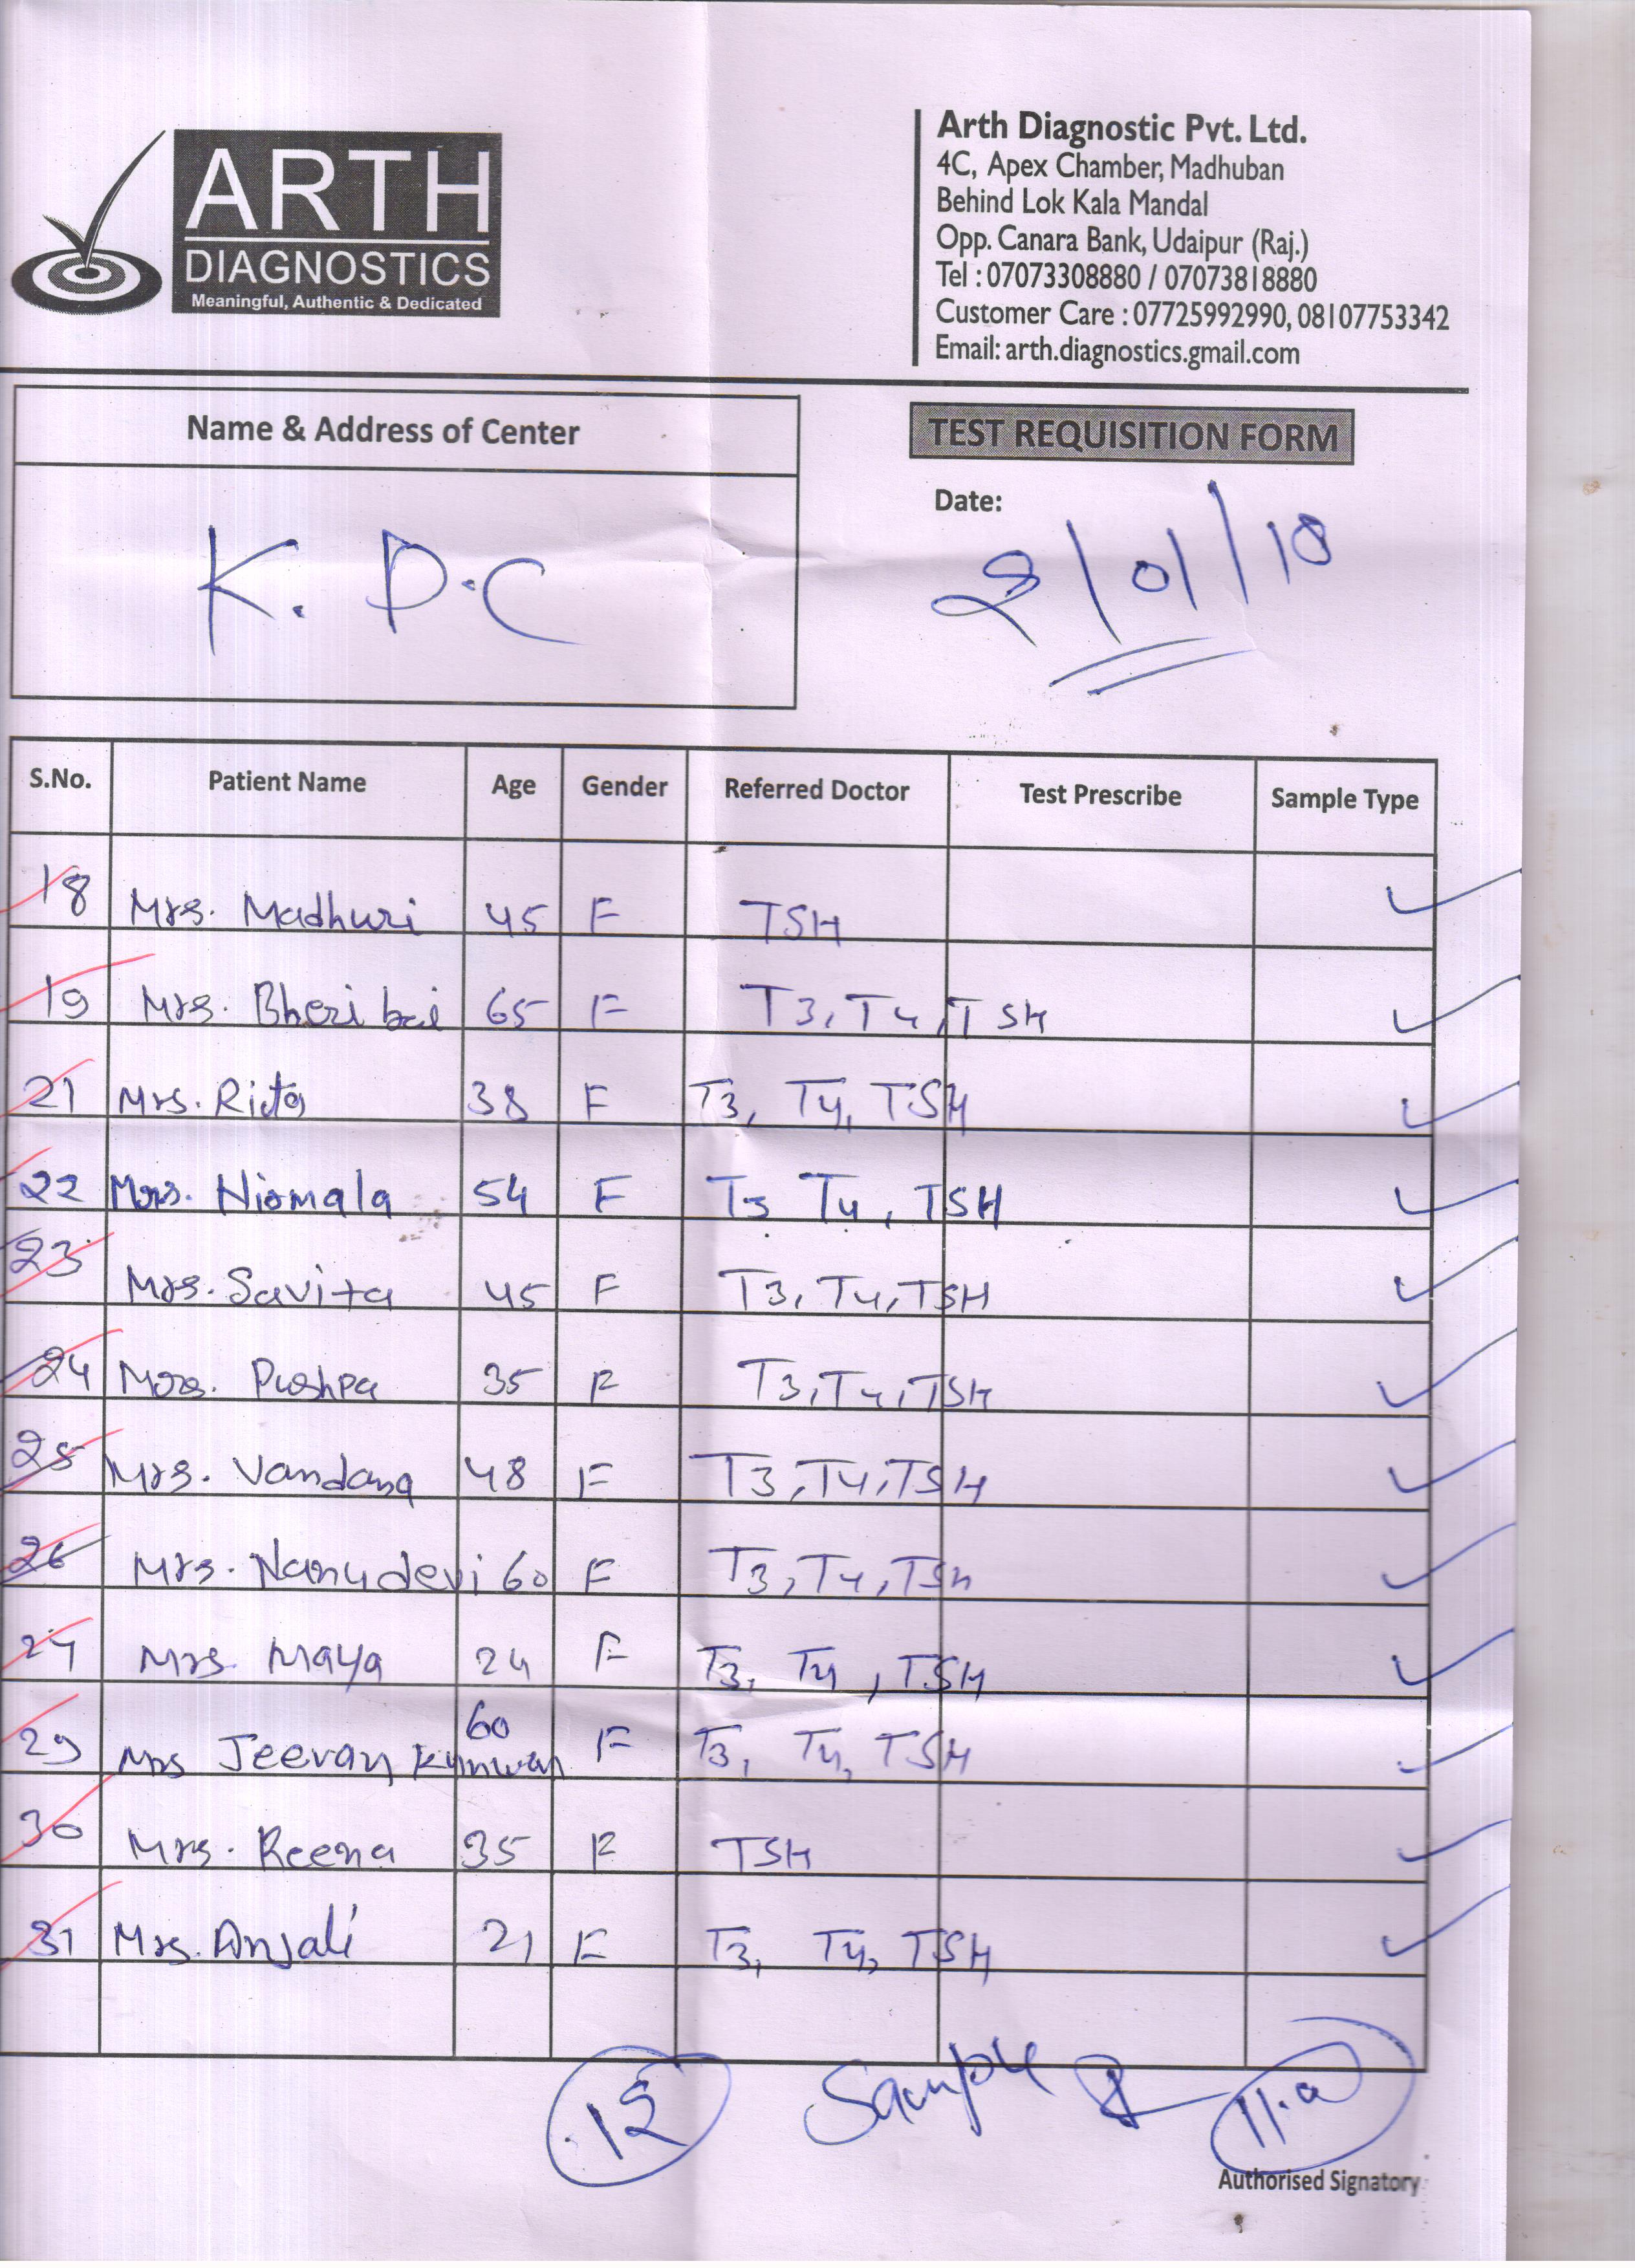 ARTH
DIAGNOSTICS
Meaningful, Authentic & Dedicated
Arth Diagnostic Pvt. Ltd.
4C, Apex Chamber, Madhuban
Behind Lok Kala Mandal
Opp. Canara Bank, Udaipur (Raj.)
Tel : 07073308880 / 07073818880
Customer Care : 07725992990, 08107753342
Email: arth.diagnostics.gmail.com
Name & Address of Center
TEST REQUISITION FORM
Date:
K. D.C
2/01/18
S.No. Patient Name Age Gender Referred Doctor Test Prescribe Sample Type
18 Mrs. Madhuri 45 F TSH
19 Mrs. Bheri bai 65 F T3, T4, TSH
21 Mrs. Rita 38 F T3, T4, TSH
22 Mrs. Nirmala 54 F T3 T4, TSH
23 Mrs. Savita 45 F T3, T4, TSH
24 Mrs. Pushpa 35 F T3, T4, TSH
25 Mrs. Vandana 48 F T3, T4, TSH
26 Mrs. Nanudevi 60 F T3, T4, TSH
27 Mrs. Maya 24 F T3, T4, TSH
29 Mrs Jeevan Kunwar 60 F T3, T4, TSH
30 Mrs. Reena 35 F TSH
31 Mrs. Anjali 21 F T3, T4, TSH
12 Sample
Authorised Signatory